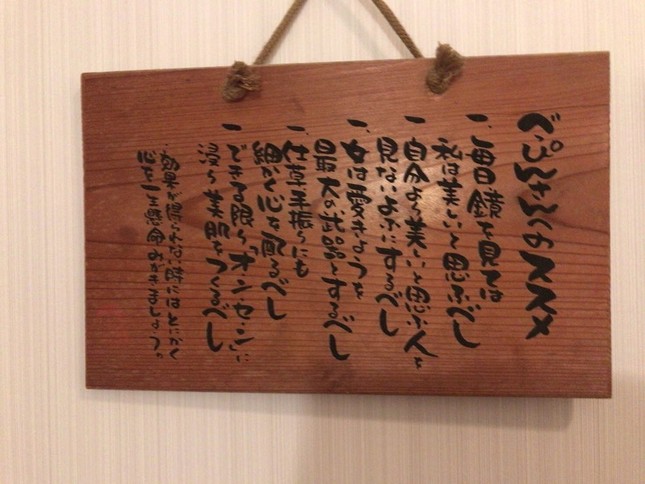 べっぴんさんのススメ
一、毎日鏡を見ては
私は美しいと思ふべし
一、自分より美しいと思ふ人を
見ないようにするべし
一、女は愛きょうを
最大の武器とするべし
一、仕草手振りにも
細かく心を配るべし
一、できる限り“オンセン”に
浸り美肌をつくるべし
効果が顕れない時にはとにかく
心を一生懸命みがきましょう